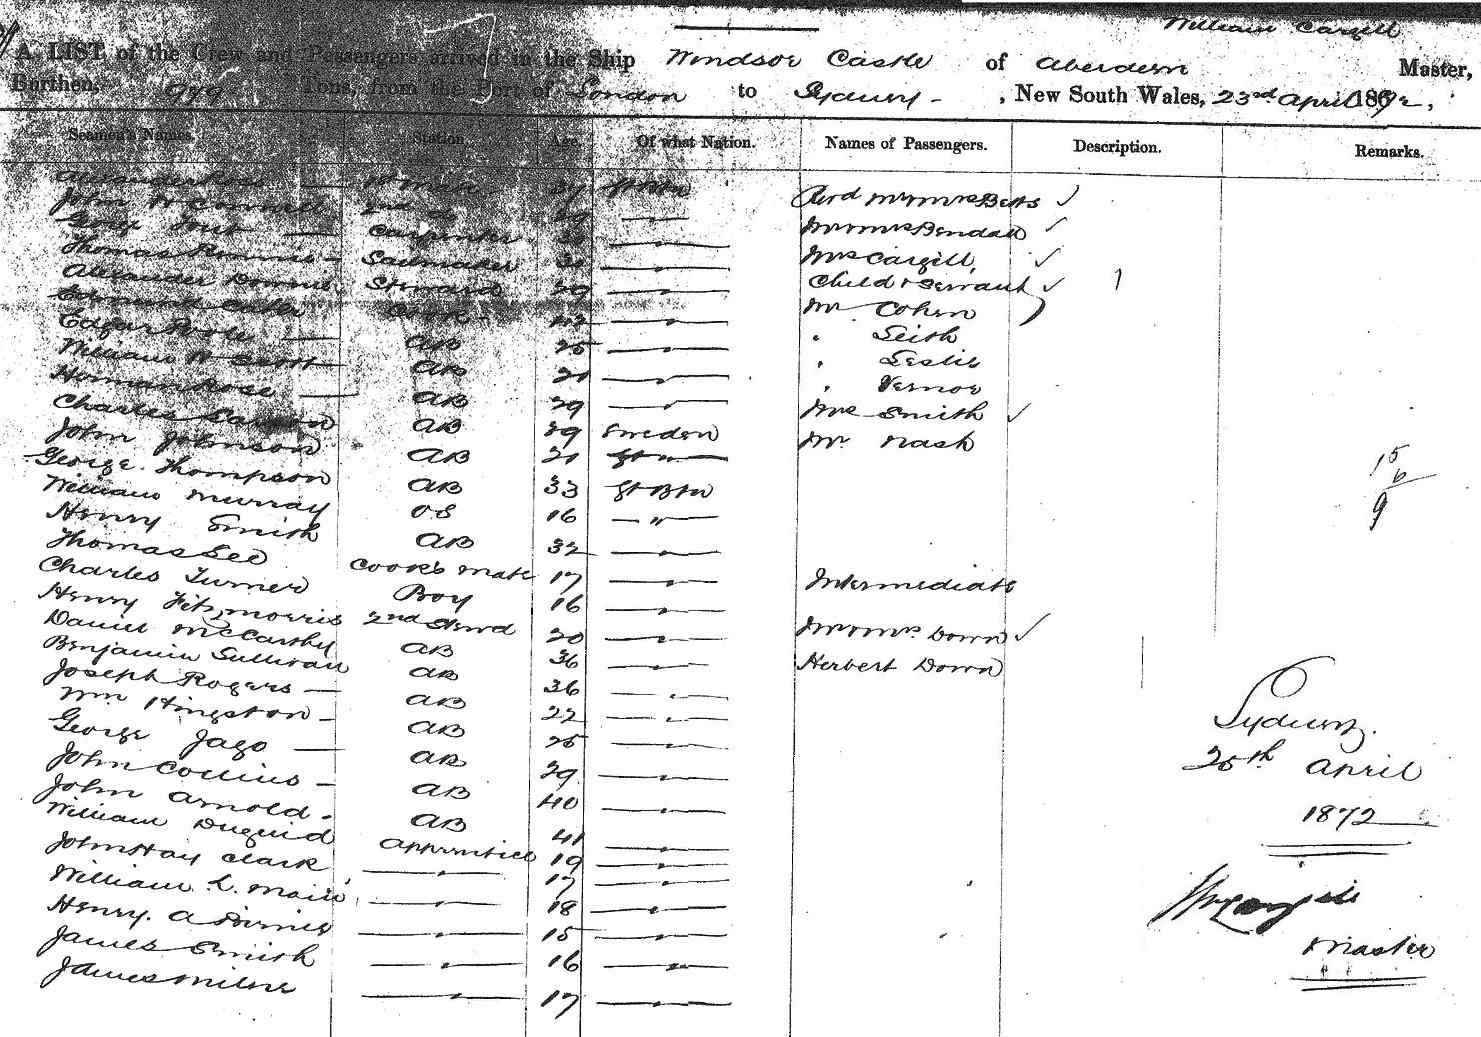 William Cargill
A LIST of the Crew and Passengers arrived in the Ship Windsor Castle of Aberdeen Master,
Burthen, 979 Tons, from the Port of London to Sydney - , New South Wales, 23rd April 1872,
Seamen's Names. Station Age. Of what Nation. Names of Passengers. Description. Remarks.
Alexander Ross — 1st Mate - Gt Btn Revd Mr & Mrs Betts ✓
John McConnell 2nd do 29 — " — Mr & Mrs Bendall ✓
— Carpenter — " — Mrs Cargill, ✓
Thomas Rennie - Sailmaker — " — Child & Servant ✓ 1
Alexander Downie Steward 29 — " — Mr Cohen
Edmund Cook - 42 — " — " Leith
Edgar Poole — AB 25 — " — " Leslie
William W Scott — AB 21 — " — " Vernor
Herman Rose — AB 29 — " — Mrs Smith ✓
Charles AB 29 Sweden Mr Nash
John Johnson AB 21
George Thompson AB 33 Gt Btn
William Murray OS 16 — " —
Henry Smith AB 32 — " —
Thomas Lee Cook's Mate 17 — " — Intermediate
Charles Turner Boy 16 — " —
Henry Fitzmorris 2nd Stewd 20 — " — Mr & Mrs Down ✓
Daniel McCarthy AB 36 — " — Herbert Down
Benjamin Sullivan AB 36 — " —
Joseph Rogers — AB 22 — " —
Wm Hingston - AB 25 — " —
George Jago — AB 29 — " —
John Collins - AB 40 — " —
John Arnold - AB 41 — " —
William Duguid Apprentice 19 — " —
John Hay Clark — " — 17 — " —
William L. Main — " — 18 — " —
Henry. A — " — 15 — " —
James Smith — " — 16 — " —
James Milne — " — 17 — " —
15
6
9
Sydney.
25th April
1872
Wm Cargill
Master